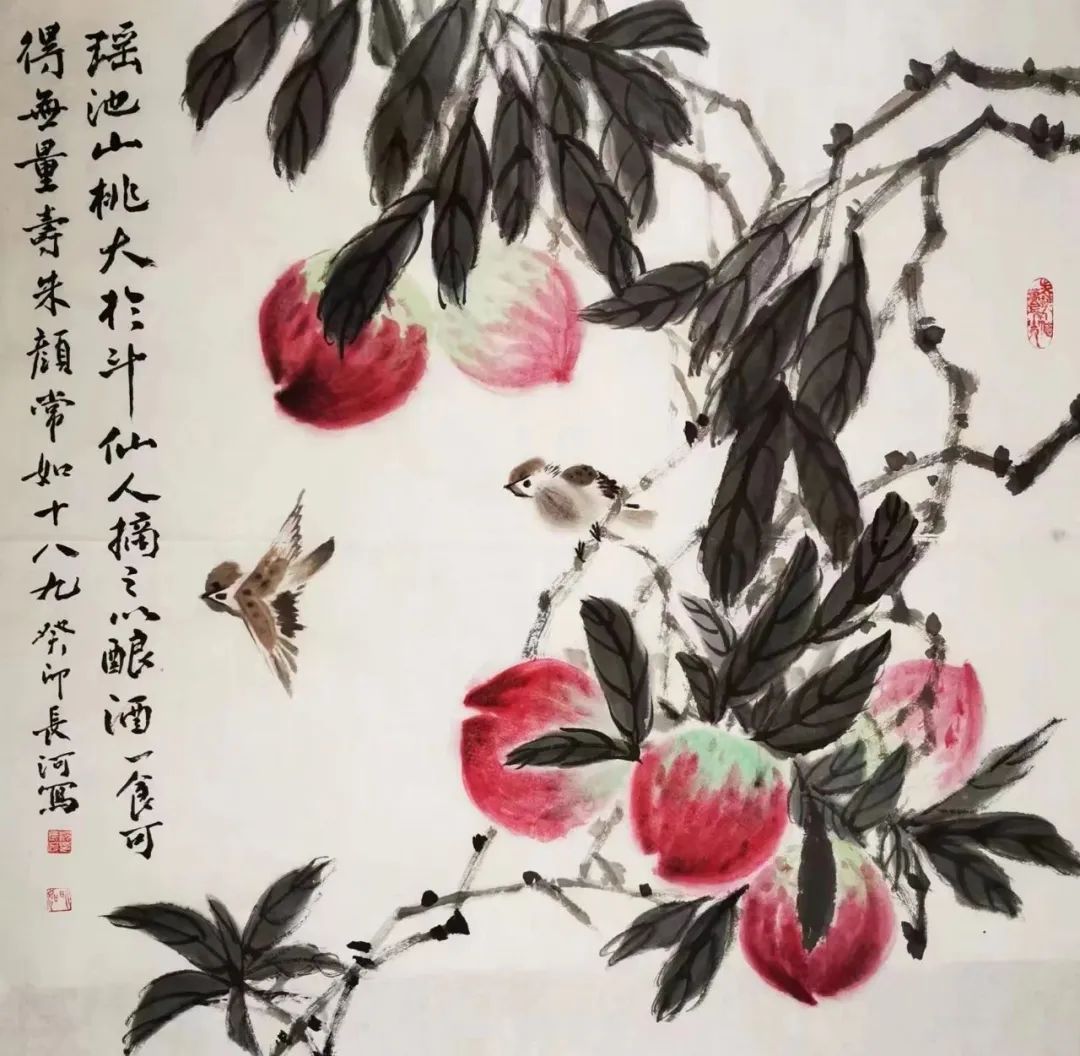 瑶池山桃大於斗仙人摘之以酿酒一食可
得無量壽朱顔常如十八九癸卯長河寫